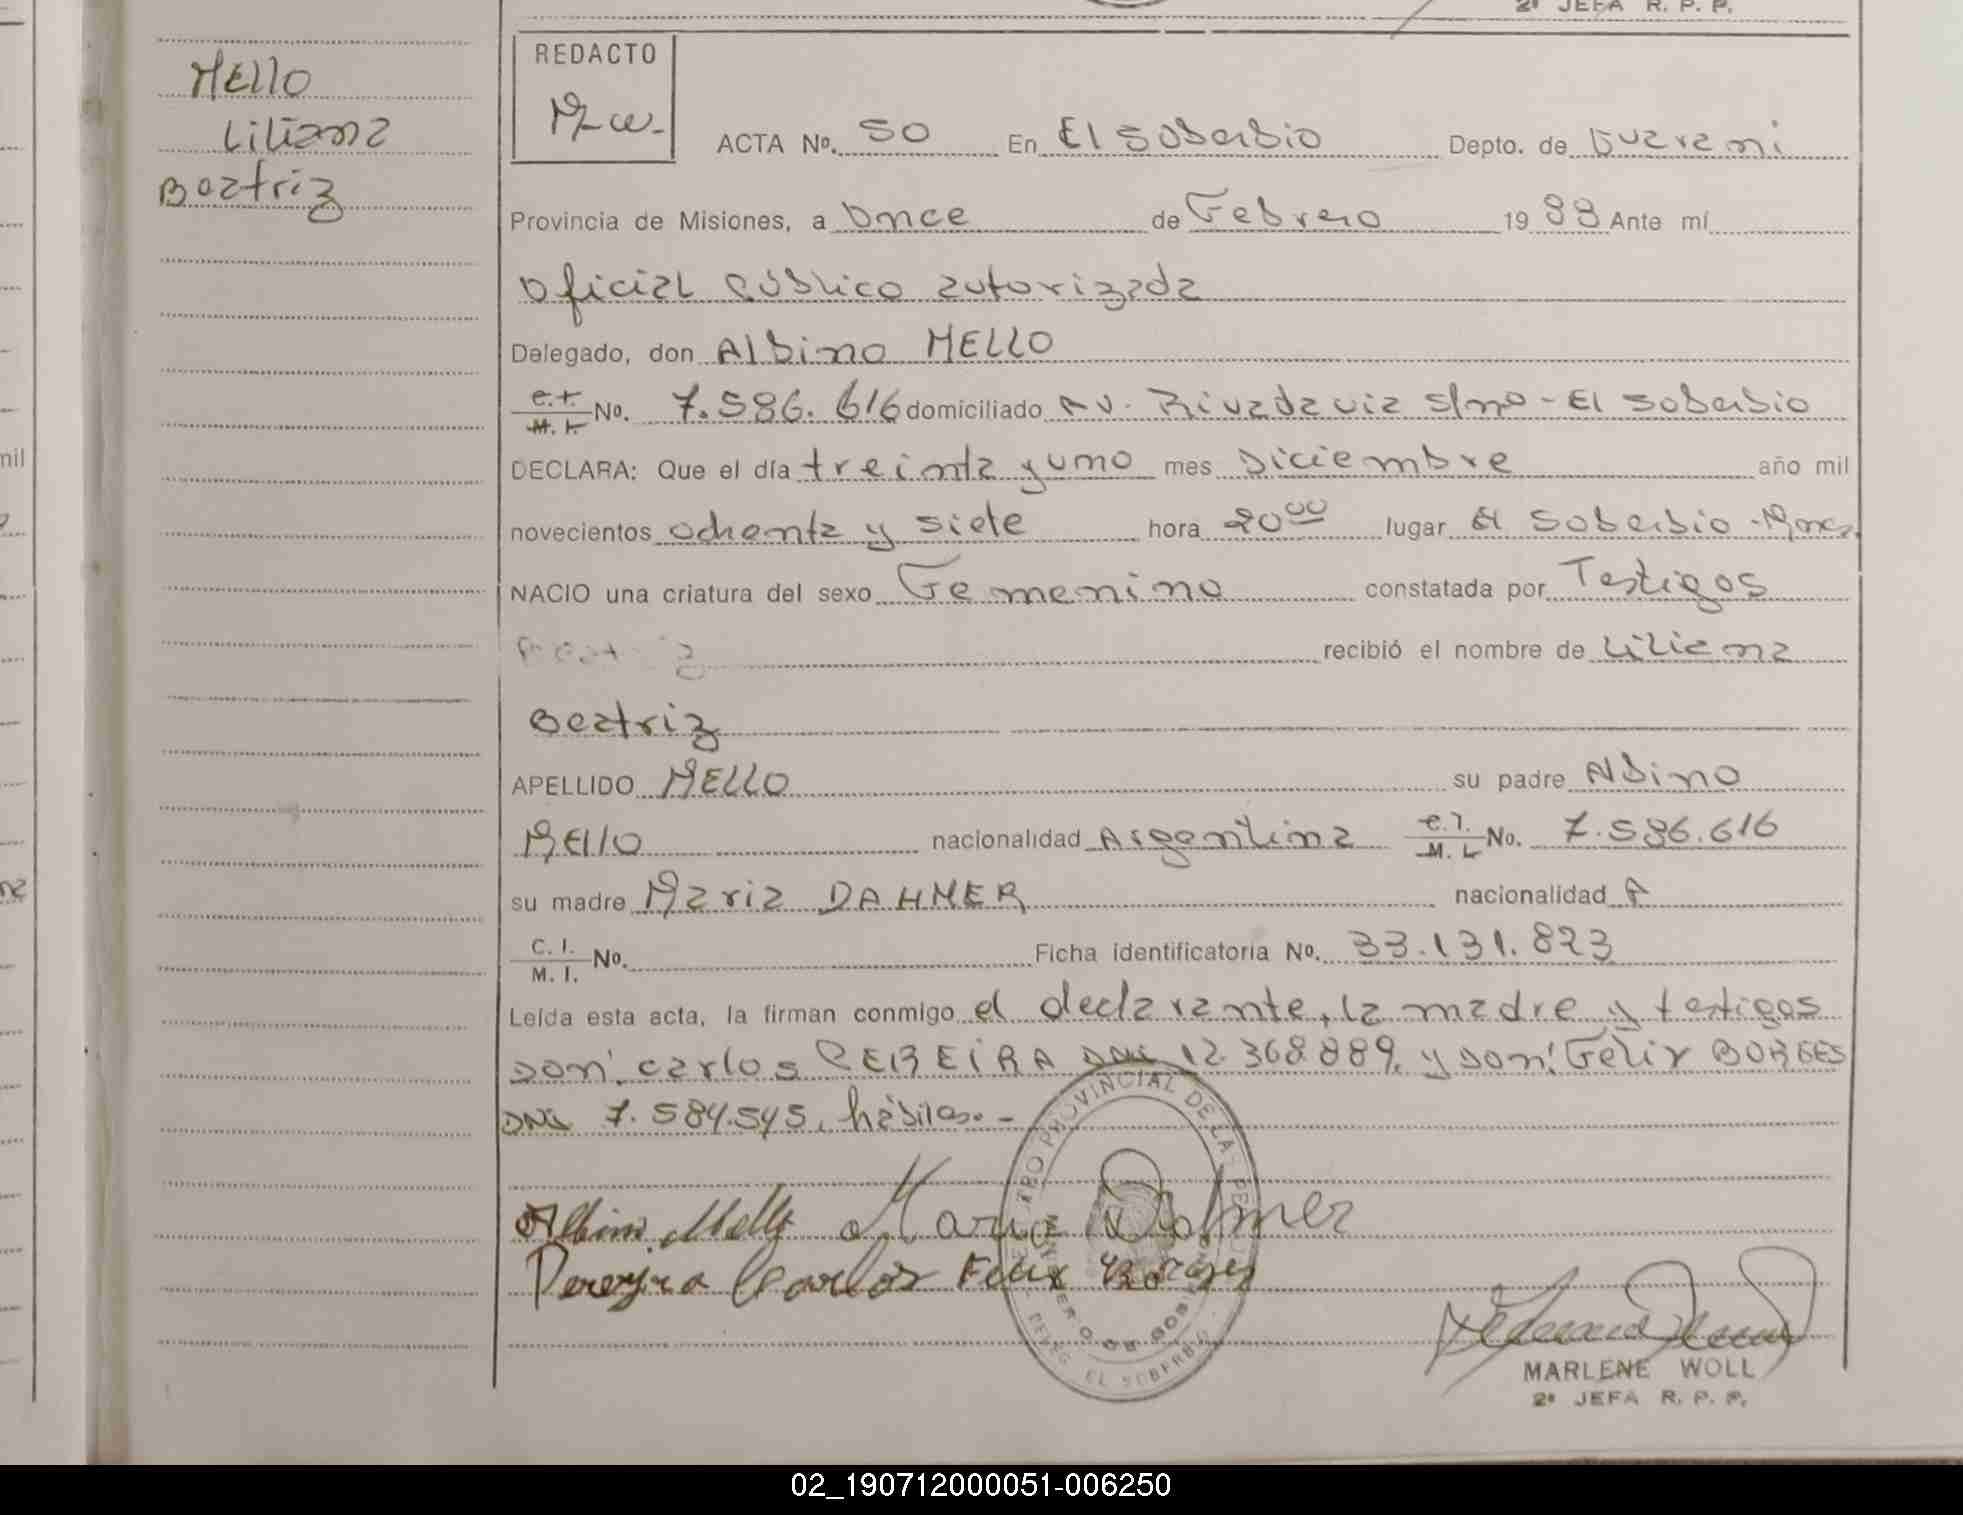 2ª JEFA R. P. P.
MEllo
Liliana
Beatriz
REDACTO
Mw.-
ACTA Nº. 50 En El Soberbio Depto. de Guarani
Provincia de Misiones, a Once de Febrero 1988 Ante mí
Oficial Público autorizada
Delegado, don Albino MELLO
M. I. Nº. 7.586.616 domiciliado Av. Rivadavia s/nº - El Soberbio
DECLARA: Que el día treinta y uno mes Diciembre año mil
novecientos ochenta y siete hora 20 00 lugar El Soberbio - Mnes.
NACIO una criatura del sexo Femenino constatada por Testigos
recibió el nombre de Liliana
Beatriz
APELLIDO MELLO su padre Albino
MEllo nacionalidad Argentina C. I. M. I. Nº. 7.586.616
su madre Maria DAHMER nacionalidad A
C. I. M. I. Nº. Ficha identificatoria Nº. 33.131.823
Leída esta acta, la firman conmigo el declarante, la madre y testigos
don: Carlos PEREIRA DNI 12.368.889, y don: Felix BORGES
DNI 7.584.545, hábiles.-
Albino Mello Maria Dahmer
Pereyra Carlos Felix Borges
MARLENE WOLL
2ª JEFA R. P. P.
02_190712000051-006250